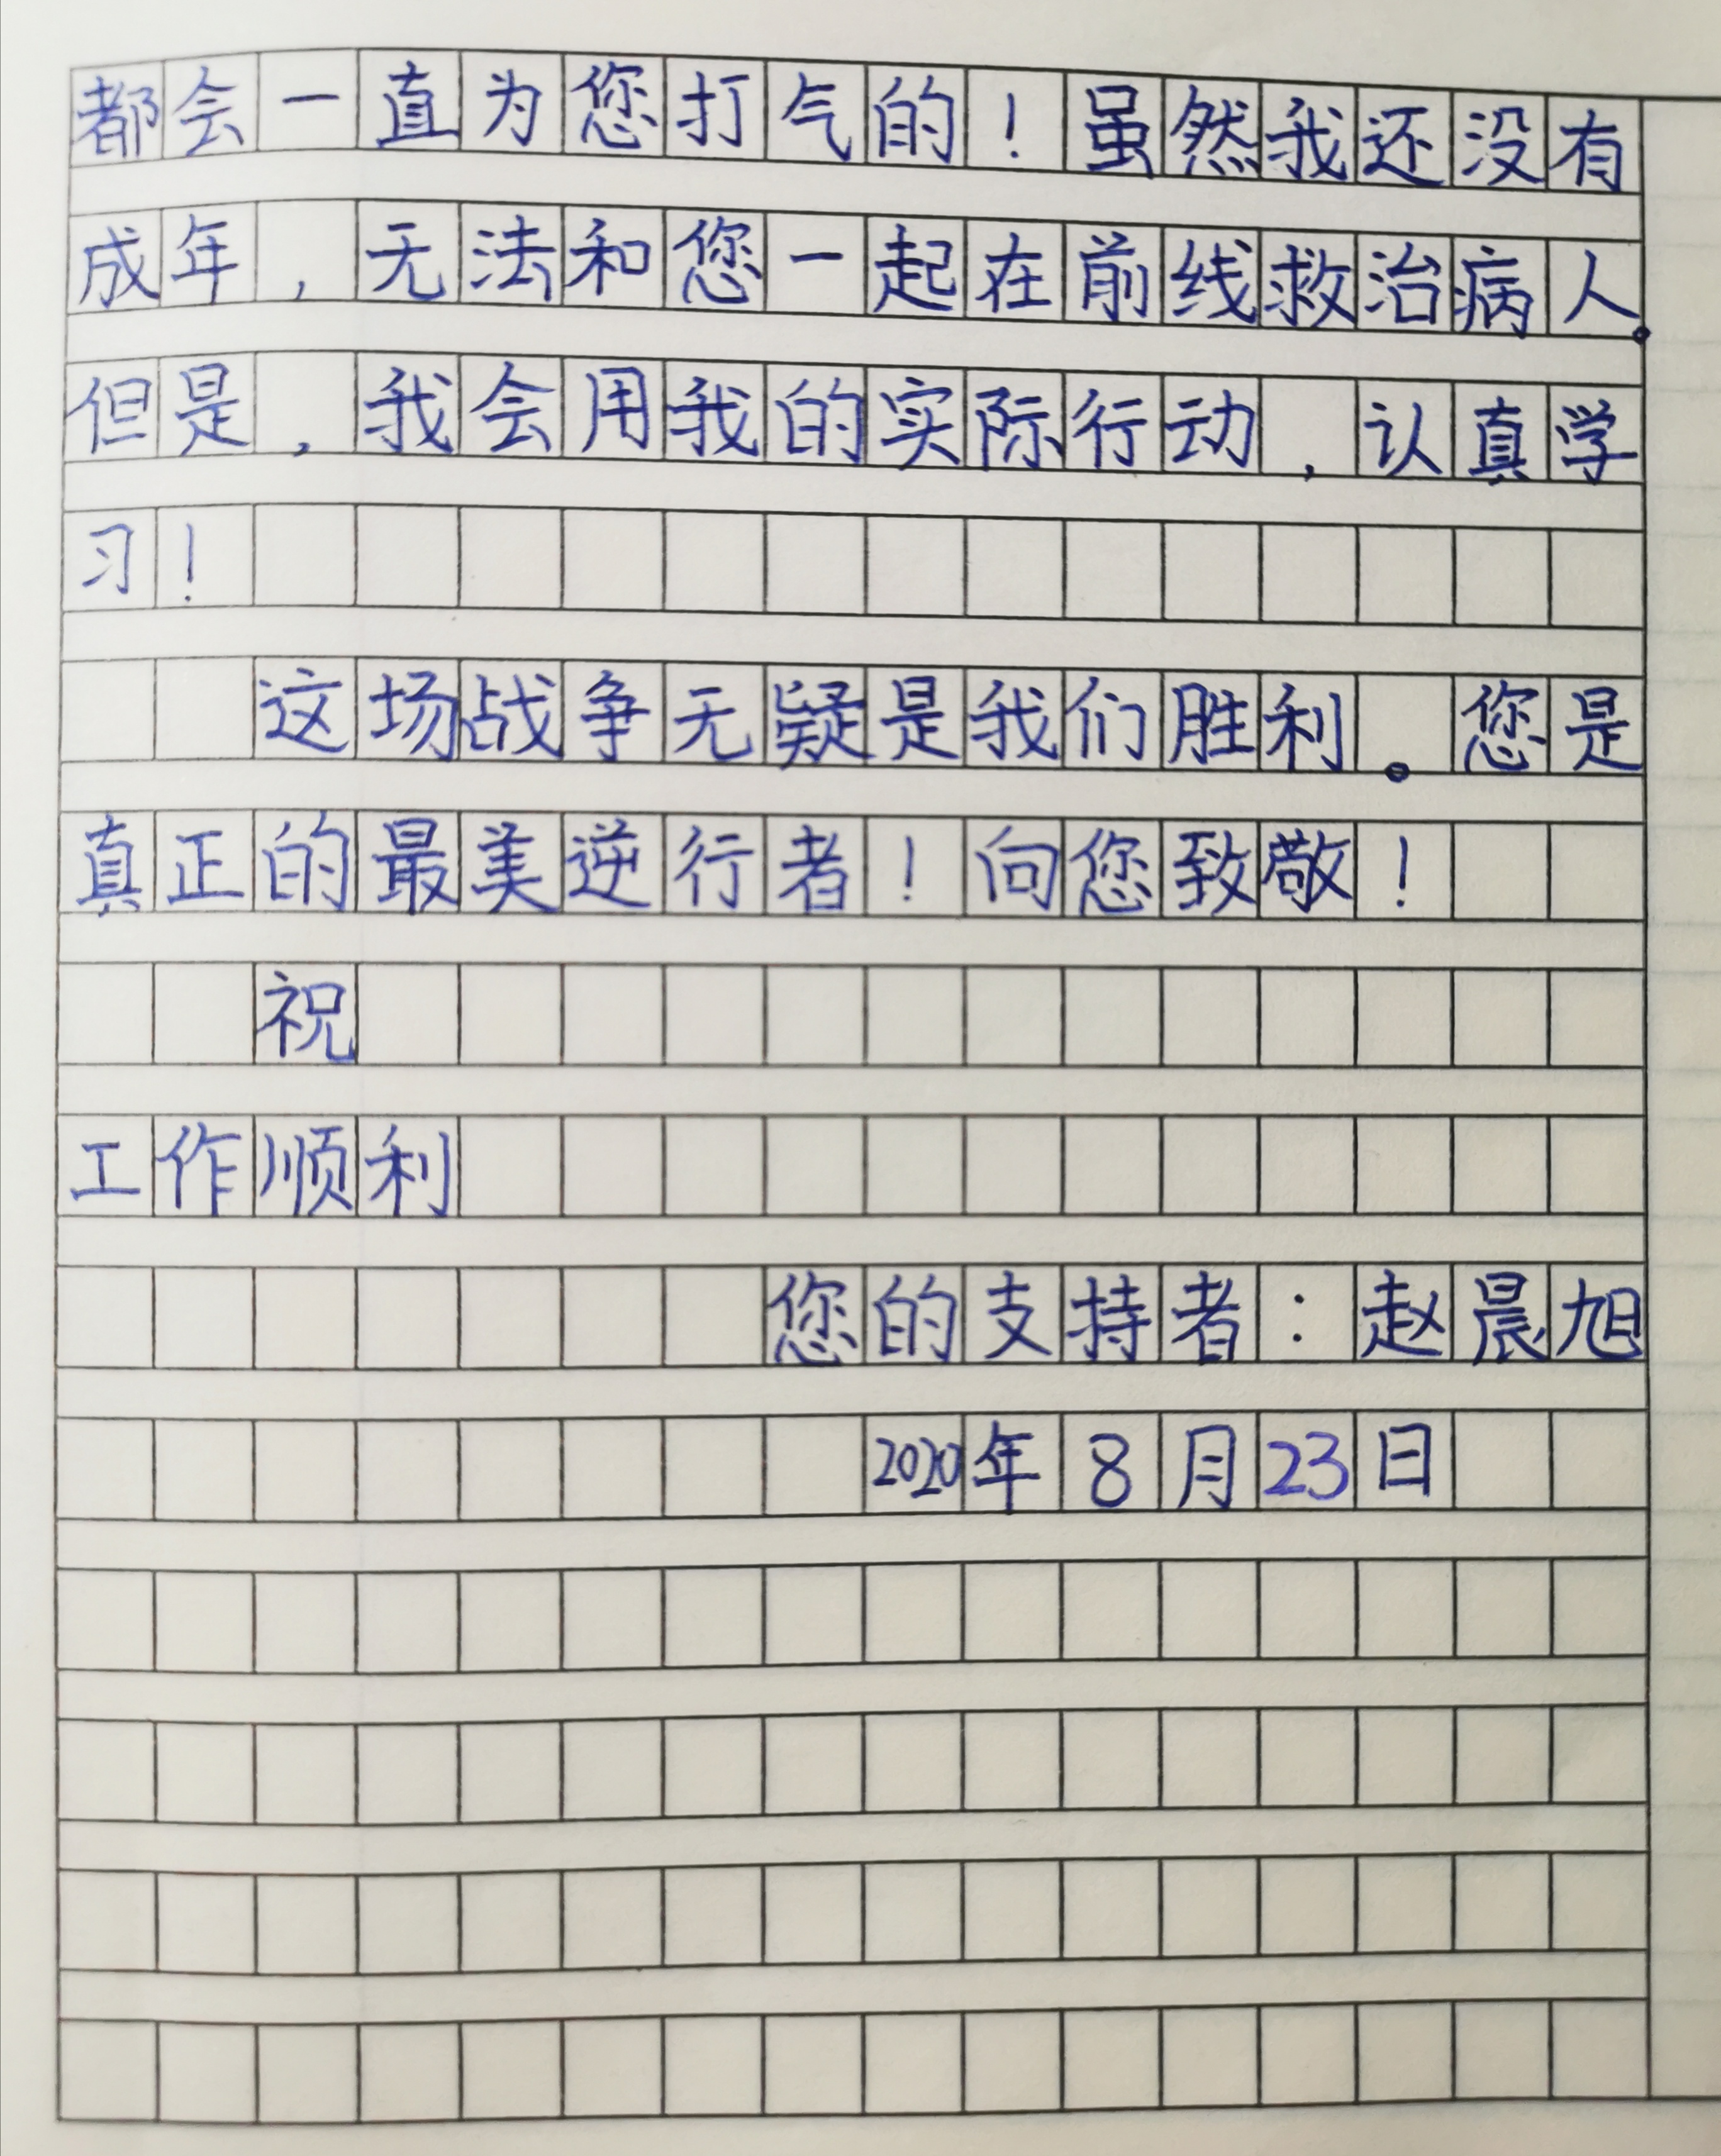 都会一直为您打气的！虽然我还没有
成年，无法和您一起在前线救治病人。
但是，我会用我的实际行动，认真学
习！
这场战争无疑是我们胜利。您是
真正的最美逆行者！向您致敬！
祝
工作顺利
您的支持者：赵晨旭
2020年8月23日